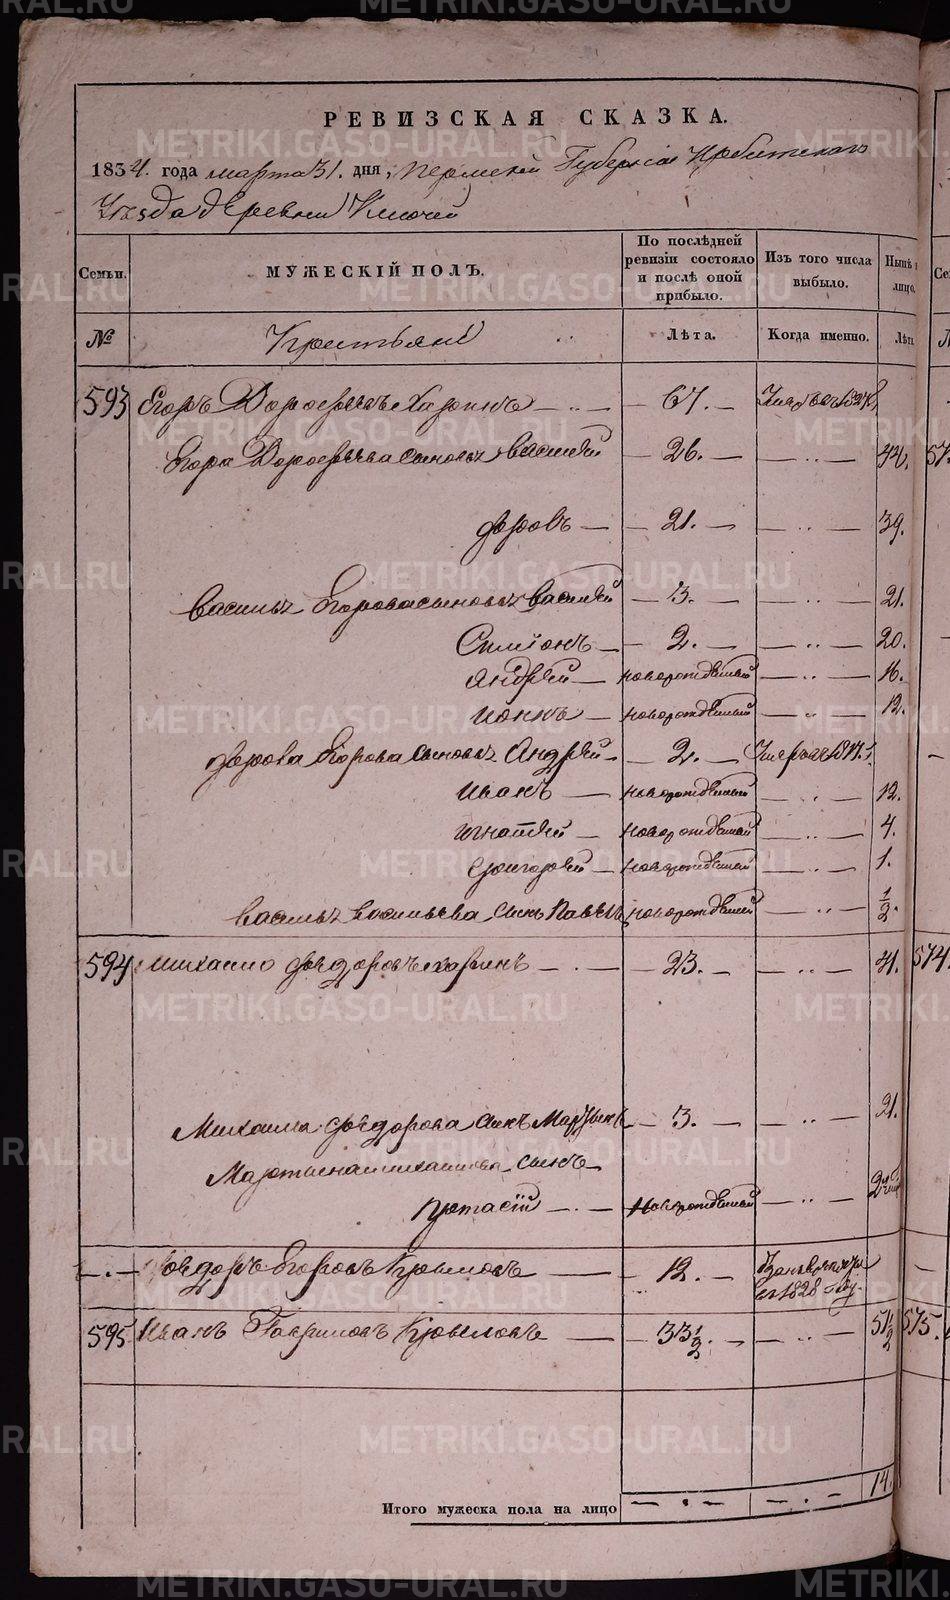 РЕВИЗСКАЯ СКАЗКА.
1834. года марта 31. дня, Пермской Губернии Ирбитскаго
Уезда деревни Ключей
Семьи. МУЖЕСКІЙ ПОЛЪ. По послѣдней ревизіи состояло и послѣ оной прибыло. Изъ того числа выбыло. Нынѣ лицо.
№ Крестьяне Лѣта. Когда именно. Лѣта
593 Егоръ Дорофеевъ Харинъ 67.
Егора Дорофеева сыновья Василей 26. 44.
Федоръ 21. 39.
Василья Егорова сыновья Василей 3. 21.
Симионъ 2. 20.
Андрей новорожденный 16.
новорожденный 12.
Егорова сыновья Андрей 2.
Иванъ новорожденный 12.
Игнатей новорожденный 4.
Григорей новорожденный 1.
Василья Васильева сынъ Павелъ новорожденный 1/2.
594 Михаило Федоровъ Харинъ 23. 41. 574.
Михаила Федорова сынъ Мартынъ 3. 21.
Мартына Михаилова сынъ
Протасій новорожденный
Федоръ Егоровъ Крыловъ 12. 1828
595 Иванъ Гавриловъ Крыловъ 33 1/2. 51 1/2 575.
14.
Итого мужеска пола на лицо
METRIKI.GASO-URAL.RU